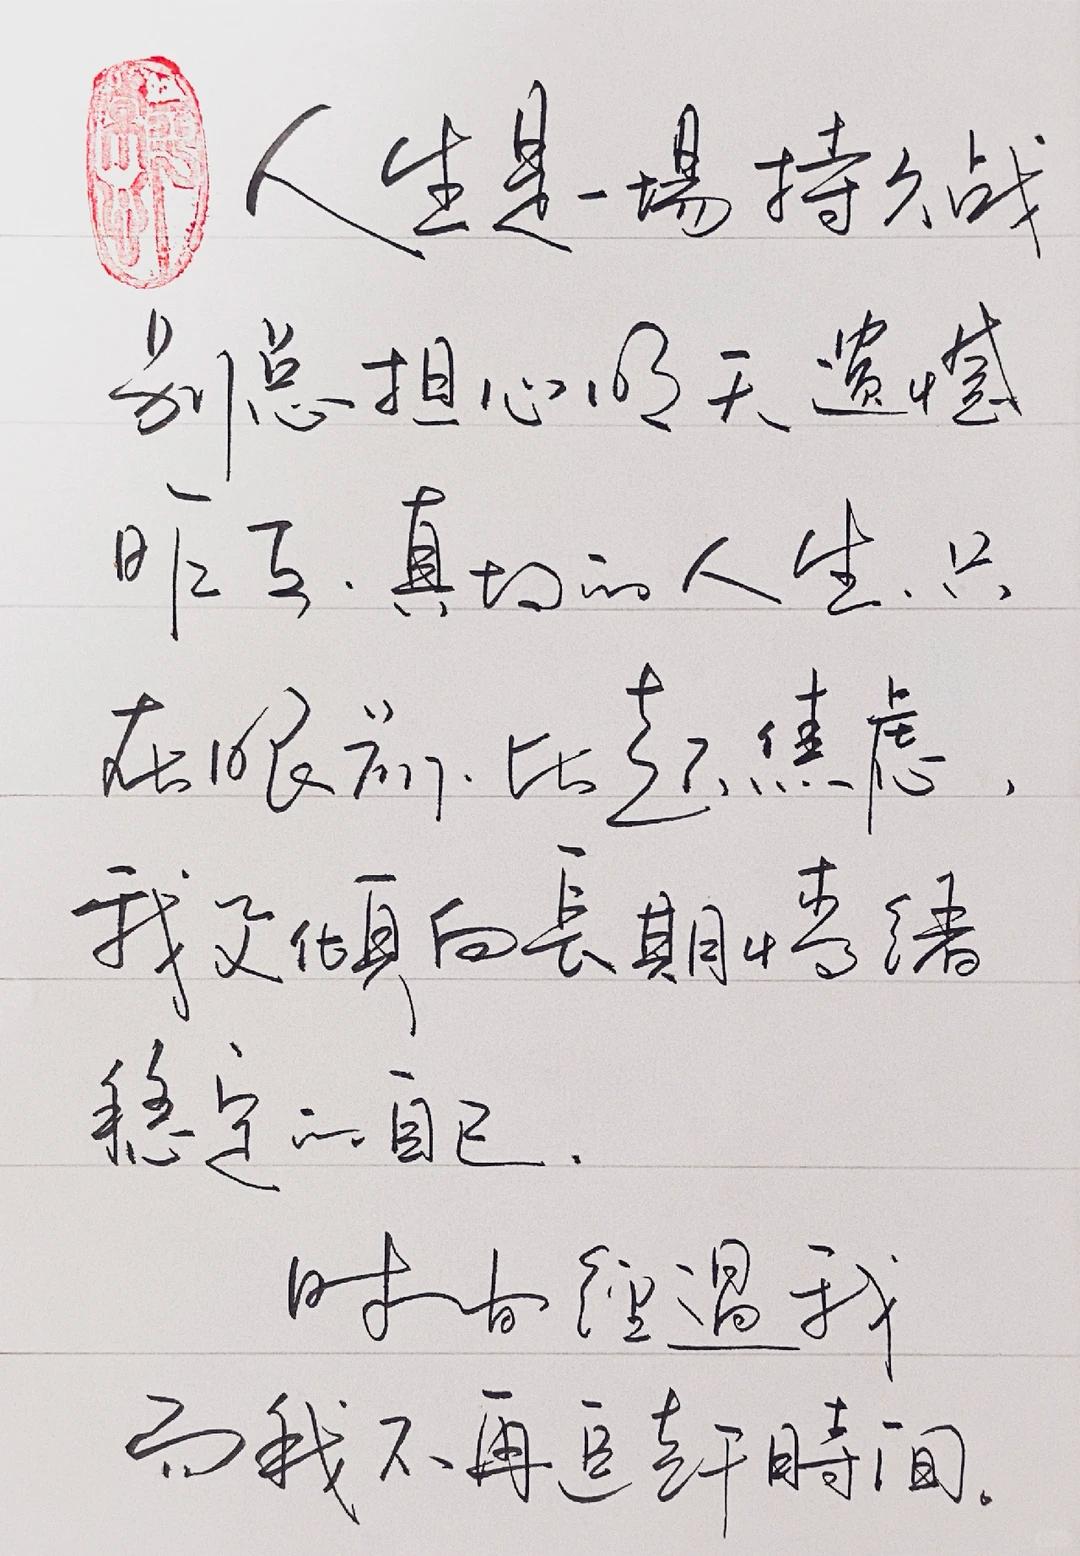 人生是一場持久战
别总担心明天遗憾
昨天.真切的人生.只
在眼前.比起焦虑,
我更倾向長期情绪
稳定的自己.
时间經過我
而我不再追赶時间。